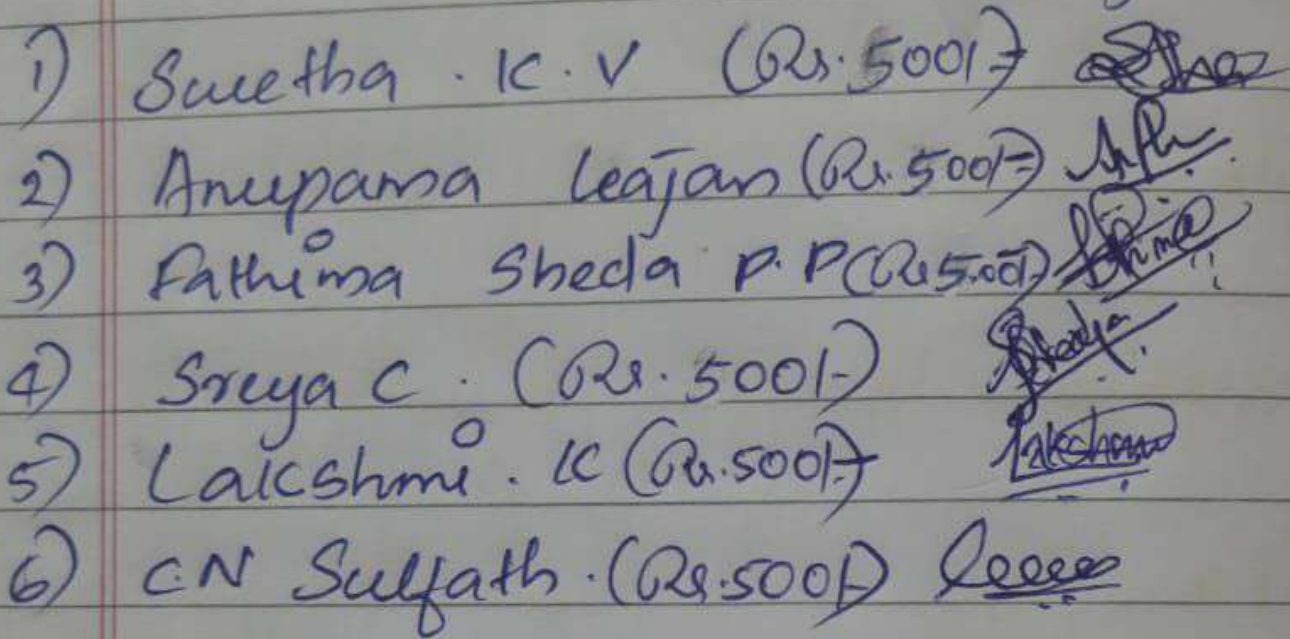 1) Swetha . K . V (Rs. 500/-)
2) Anupama Rajan (Rs. 500/-)
3) Fathima Sheda P. P (Rs 500/-) Fathima
4) Sreya C . (Rs. 500/-) Sreya
5) Lakshmi . K (Rs. 500/-) Lakshmi
6) C.N Sulfath . (Rs. 500/-)